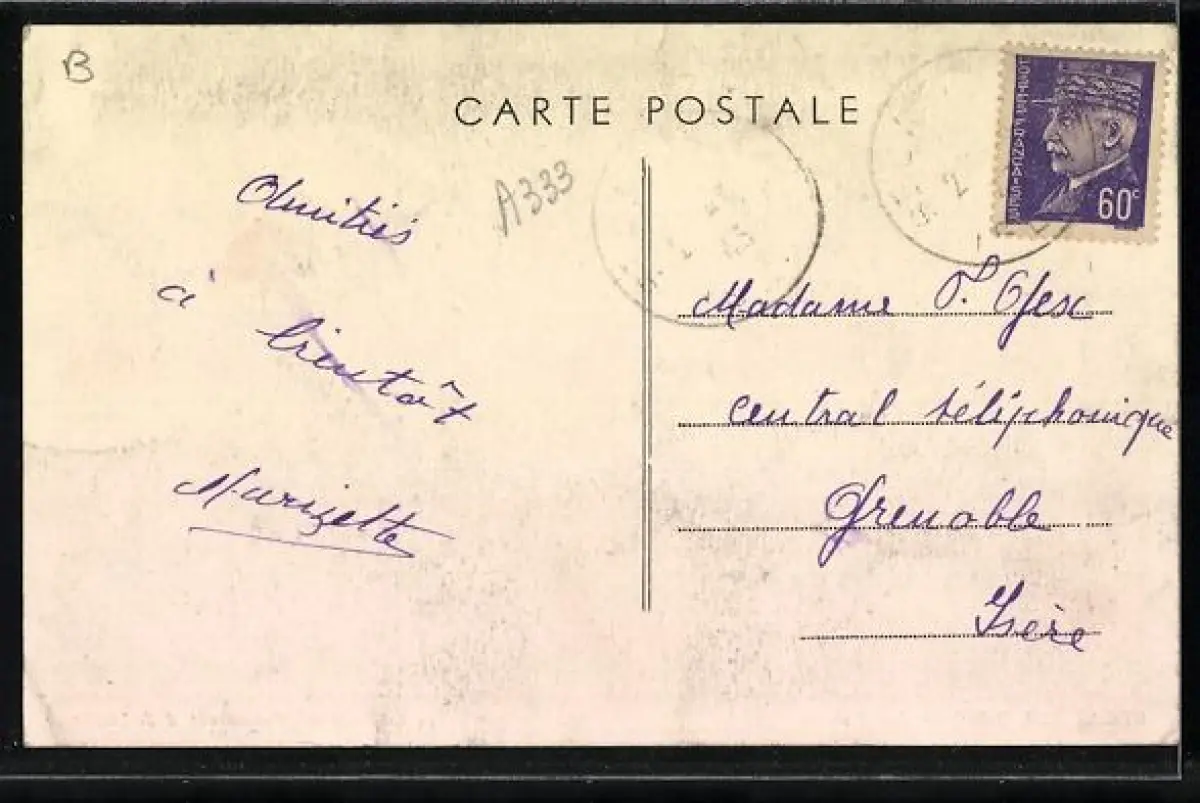 B
CARTE POSTALE
A333
POSTES FRANÇAISES
60c
Amitiés
à
bientôt
Marizette
Madame
central téléphonique
Grenoble
Isère